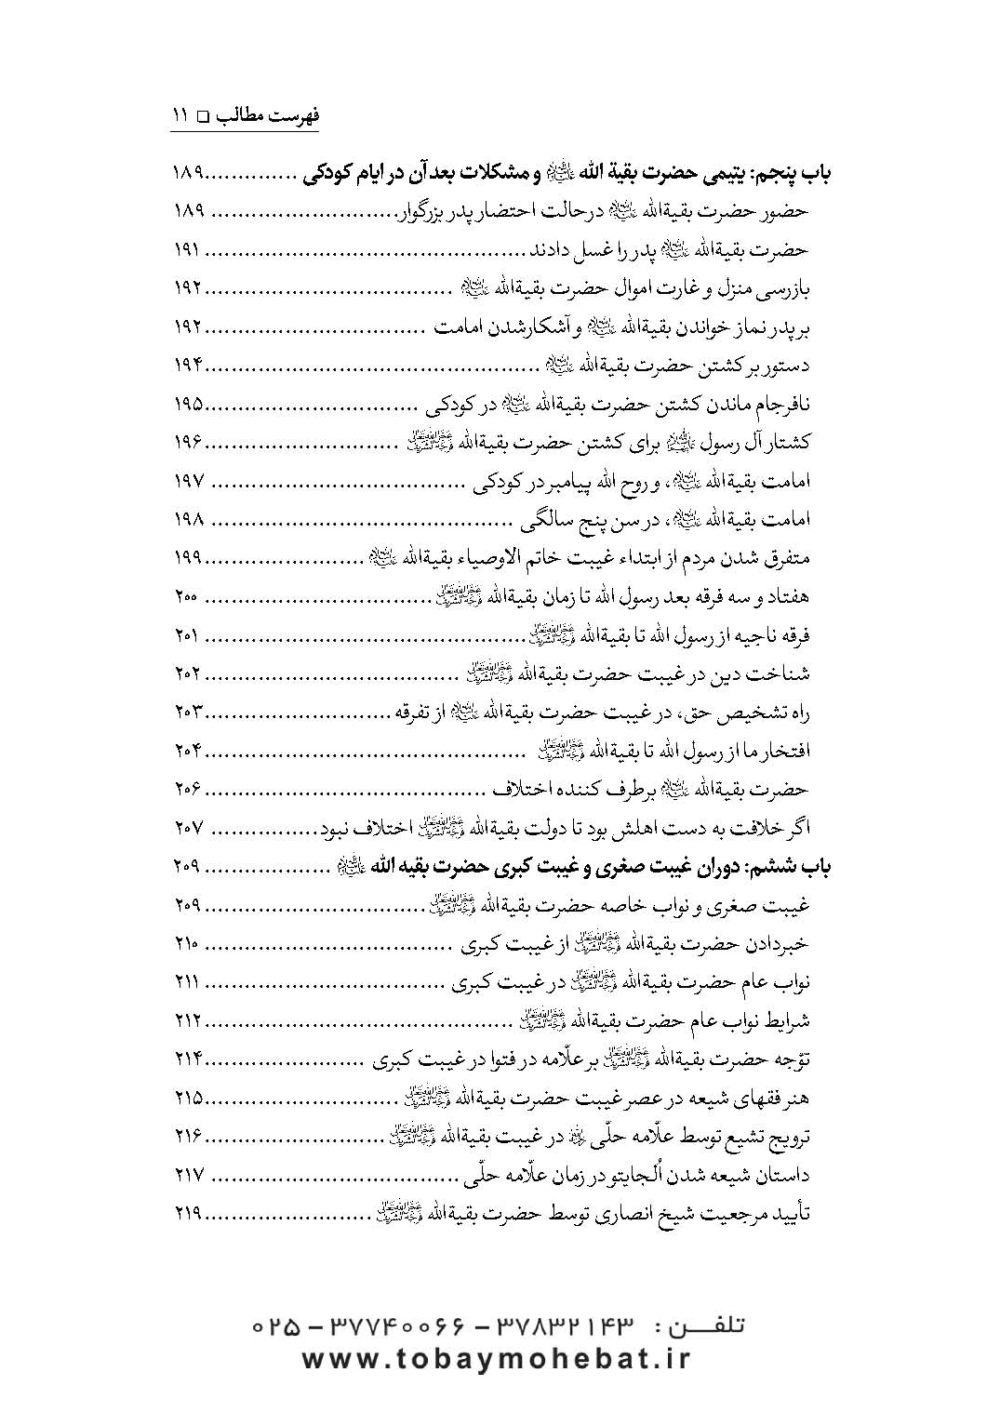 فهرست مطالب □ ۱۱
باب پنجم: یتیمی حضرت بقیة الله علیه‌السلام و مشکلات بعد آن در ایام کودکی ..............۱۸۹
حضور حضرت بقیةالله علیه‌السلام در حالت احتضار پدر بزرگوار............................ ۱۸۹
حضرت بقیةالله علیه‌السلام پدر را غسل دادند ................................................ ۱۹۱
بازرسی منزل و غارت اموال حضرت بقیةالله علیه‌السلام .....................................۱۹۲
بر پدر نماز خواندن بقیةالله علیه‌السلام و آشکارشدن امامت .................................۱۹۲
دستور بر کشتن حضرت بقیةالله علیه‌السلام ..................................................۱۹۴
نافرجام ماندن کشتن حضرت بقیةالله علیه‌السلام در کودکی ................................۱۹۵
کشتار آل رسول علیهم‌السلام برای کشتن حضرت بقیةالله عجل‌الله‌تعالی‌فرجه‌الشریف .............................۱۹۶
امامت بقیةالله علیه‌السلام، و روح الله پیامبر در کودکی ...................................... ۱۹۷
امامت بقیةالله علیه‌السلام، در سن پنج سالگی ............................................. ۱۹۸
متفرق شدن مردم از ابتداء غیبت خاتم الاوصیاء بقیةالله علیه‌السلام ........................۱۹۹
هفتاد و سه فرقه بعد رسول الله تا زمان بقیةالله عجل‌الله‌تعالی‌فرجه‌الشریف .................................. ۲۰۰
فرقه ناجیه از رسول الله تا بقیةالله عجل‌الله‌تعالی‌فرجه‌الشریف ................................................ ۲۰۱
شناخت دین در غیبت حضرت بقیةالله عجل‌الله‌تعالی‌فرجه‌الشریف ...................................... ۲۰۲
راه تشخیص حق، در غیبت حضرت بقیةالله علیه‌السلام از تفرقه ............................۲۰۳
افتخار ما از رسول الله تا بقیةالله عجل‌الله‌تعالی‌فرجه‌الشریف ................................................۲۰۴
حضرت بقیةالله علیه‌السلام برطرف کننده اختلاف .......................................... ۲۰۶
اگر خلافت به دست اهلش بود تا دولت بقیةالله عجل‌الله‌تعالی‌فرجه‌الشریف اختلاف نبود................ ۲۰۷
باب ششم: دوران غیبت صغری و غیبت کبری حضرت بقیه الله علیه‌السلام ................... ۲۰۹
غیبت صغری و نواب خاصه حضرت بقیةالله عجل‌الله‌تعالی‌فرجه‌الشریف .................................۲۰۹
خبردادن حضرت بقیةالله عجل‌الله‌تعالی‌فرجه‌الشریف از غیبت کبری ..................................... ۲۱۰
نواب عام حضرت بقیةالله عجل‌الله‌تعالی‌فرجه‌الشریف در غیبت کبری .................................... ۲۱۱
شرایط نواب عام حضرت بقیةالله عجل‌الله‌تعالی‌فرجه‌الشریف ..............................................۲۱۲
توّجه حضرت بقیةالله عجل‌الله‌تعالی‌فرجه‌الشریف بر علّامه در فتوا در غیبت کبری ........................۲۱۴
هنر فقهای شیعه در عصر غیبت حضرت بقیةالله عجل‌الله‌تعالی‌فرجه‌الشریف .............................۲۱۵
ترویج تشیع توسط علّامه حلّی رحمه‌الله در غیبت بقیةالله عجل‌الله‌تعالی‌فرجه‌الشریف ...........................۲۱۶
داستان شیعه شدن اُلجایتو در زمان علّامه حلّی ..................................... ۲۱۷
تأیید مرجعیت شیخ انصاری توسط حضرت بقیةالله عجل‌الله‌تعالی‌فرجه‌الشریف .........................۲۱۹
تلفـــن : ۳۷۸۳۲۱۴۳ – ۳۷۷۴۰۰۶۶ – ۰۲۵
www.tobaymohebat.ir